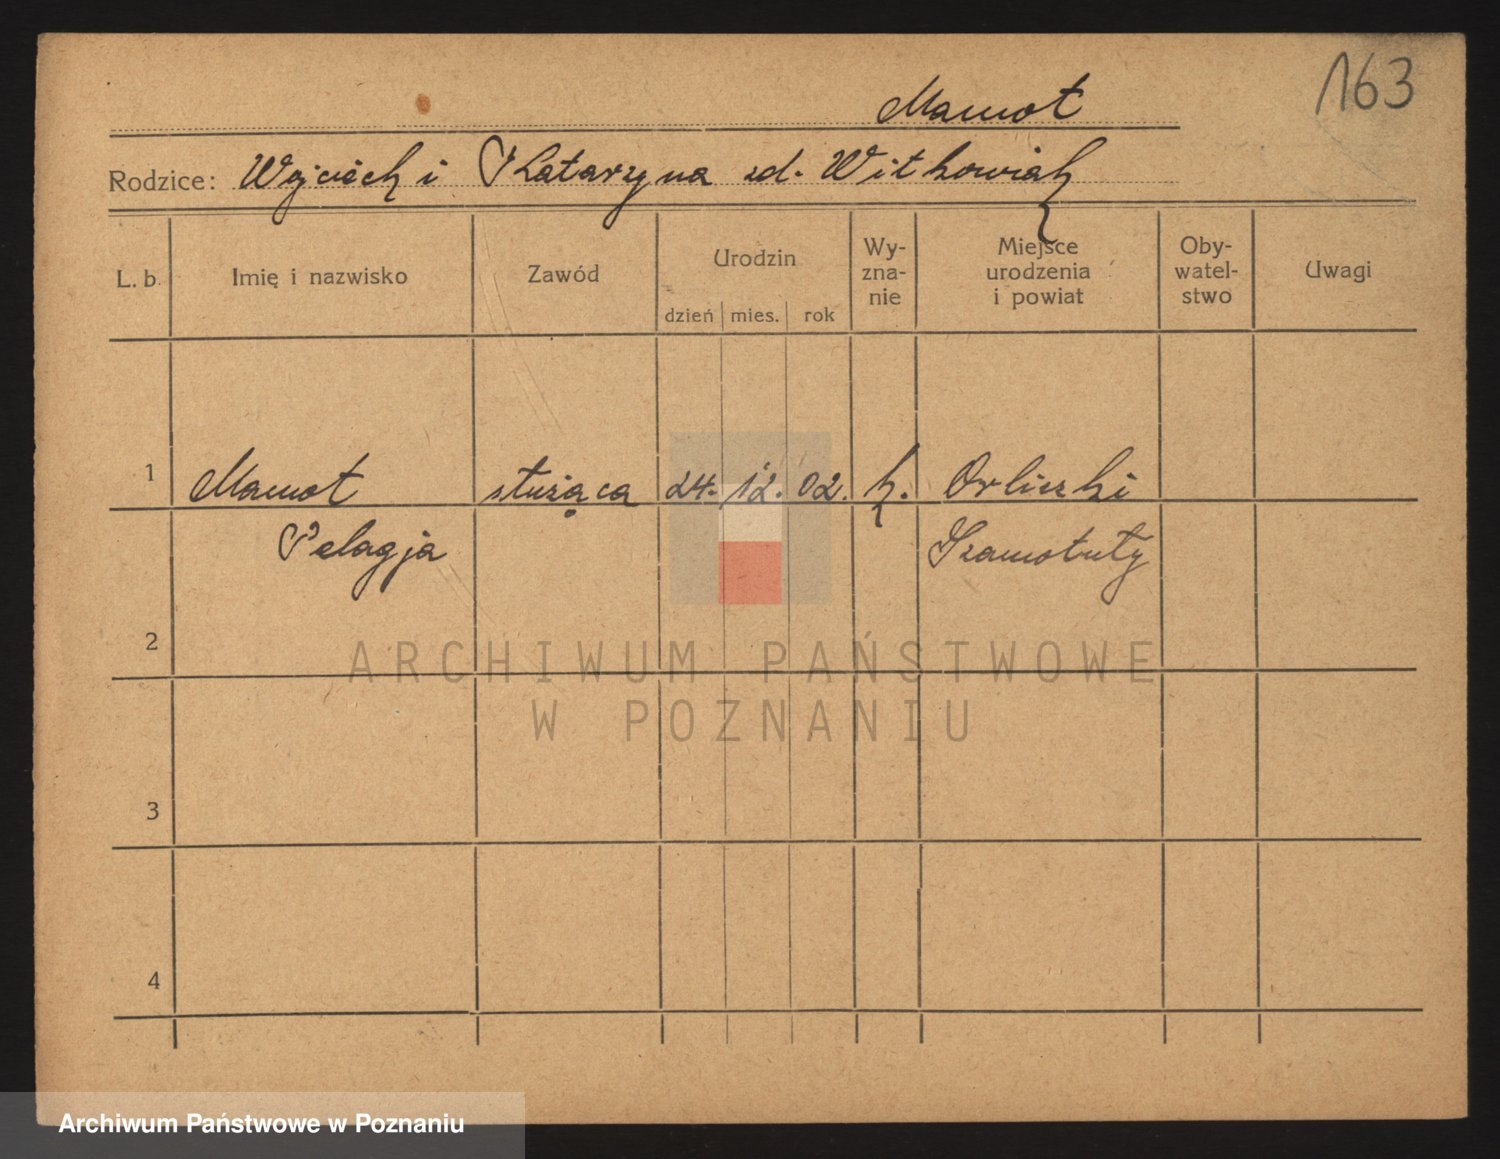 163
Mamot
Rodzice: Wojciech i Katarzyna zd. Witkowiak
L. b. Imię i nazwisko Zawód Urodzin dzień mies. rok Wy-zna-nie Miejsce urodzenia i powiat Oby-watel-stwo Uwagi
1 Mamot służąca 24. 12. 02. k. Orliczki
Pelagja Szamotuły
2
ARCHIWUM PAŃSTWOWE
W POZNANIU
3
4
Archiwum Państwowe w Poznaniu